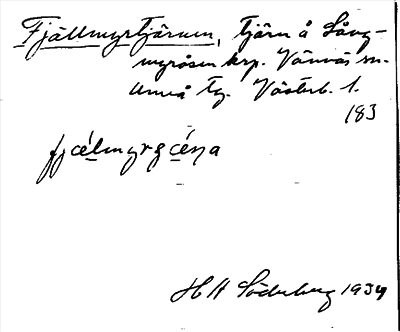 Fjällmyrtjärnen, tjärn å Lång-
myråsen krp. Vännäs sn.
Umeå tg. Västerb. l.
183
H Söderberg 1934